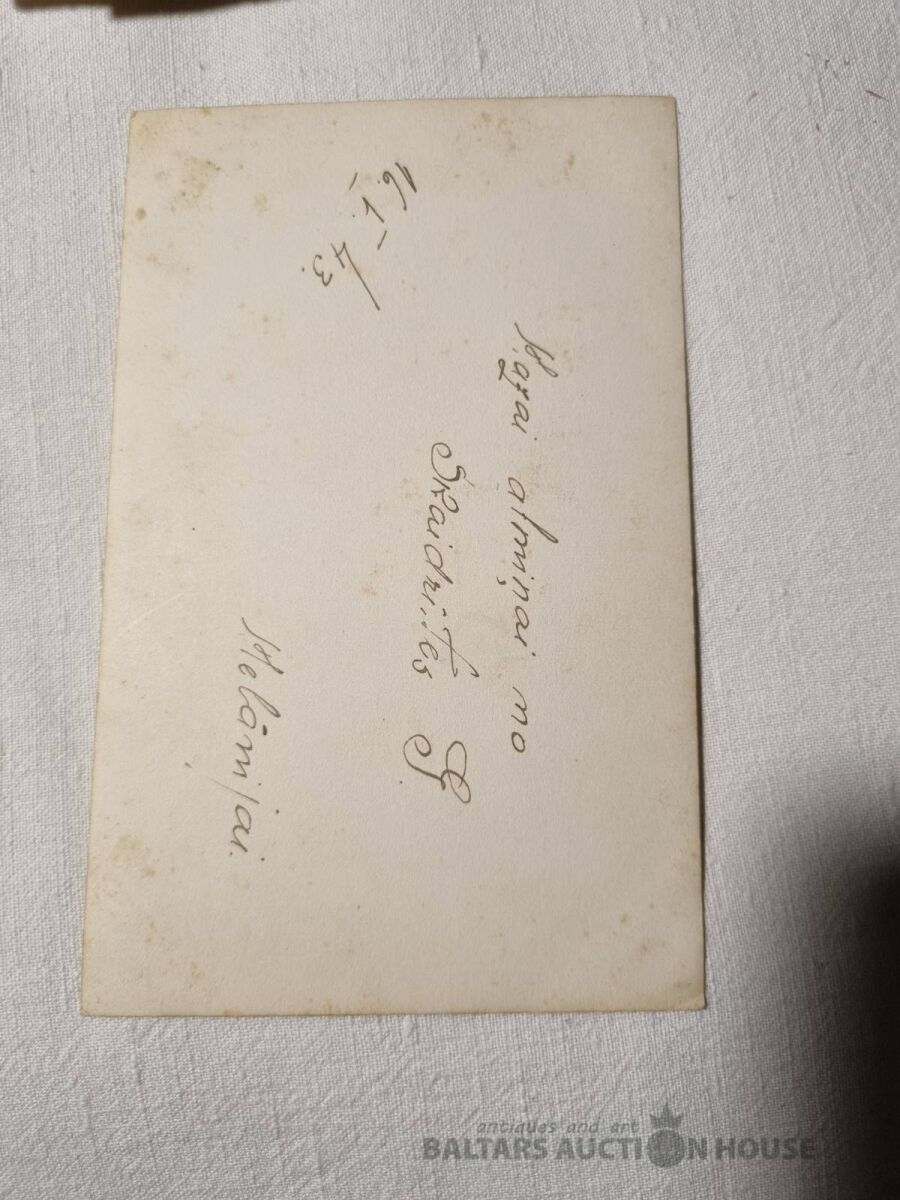 Mazai atmiņai no
Skaidrītes S
Melānijai.
antiques and art
BALTARS AUCTION HOUSE